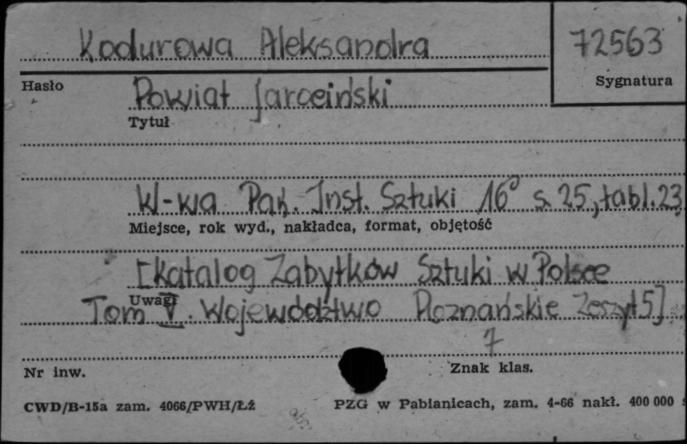 Kodurowa Aleksandra 72563
Hasło Sygnatura
Powiat Jarociński
Tytuł
W-wa Pań. Inst. Sztuki 16° s. 25, tabl. 23
Miejsce, rok wyd., nakładca, format, objętość
[Katalog Zabytków Sztuki w Polsce
Uwagi
Tom V. Województwo Poznańskie Zeszyt 5]
7
Nr inw. Znak klas.
CWD/B-15a zam. 4066/PWH/Łź PZG w Pabianicach, zam. 4-66 nakł. 400 000